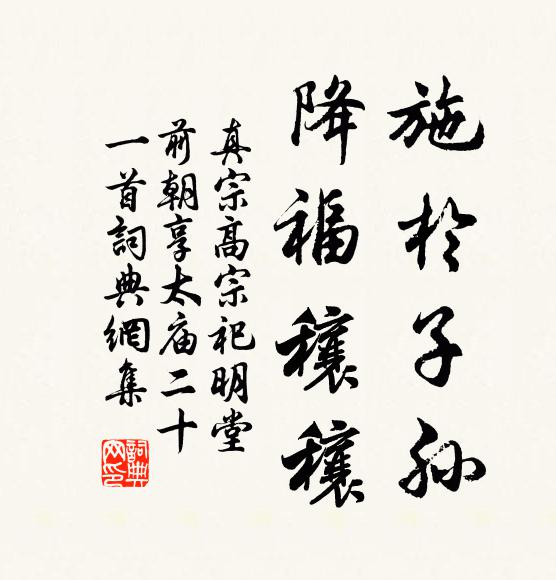 施於子孙
降福穰穰
真宗高宗祀明堂
前朝享太庙二十
一首詞典網集
詞典
网印